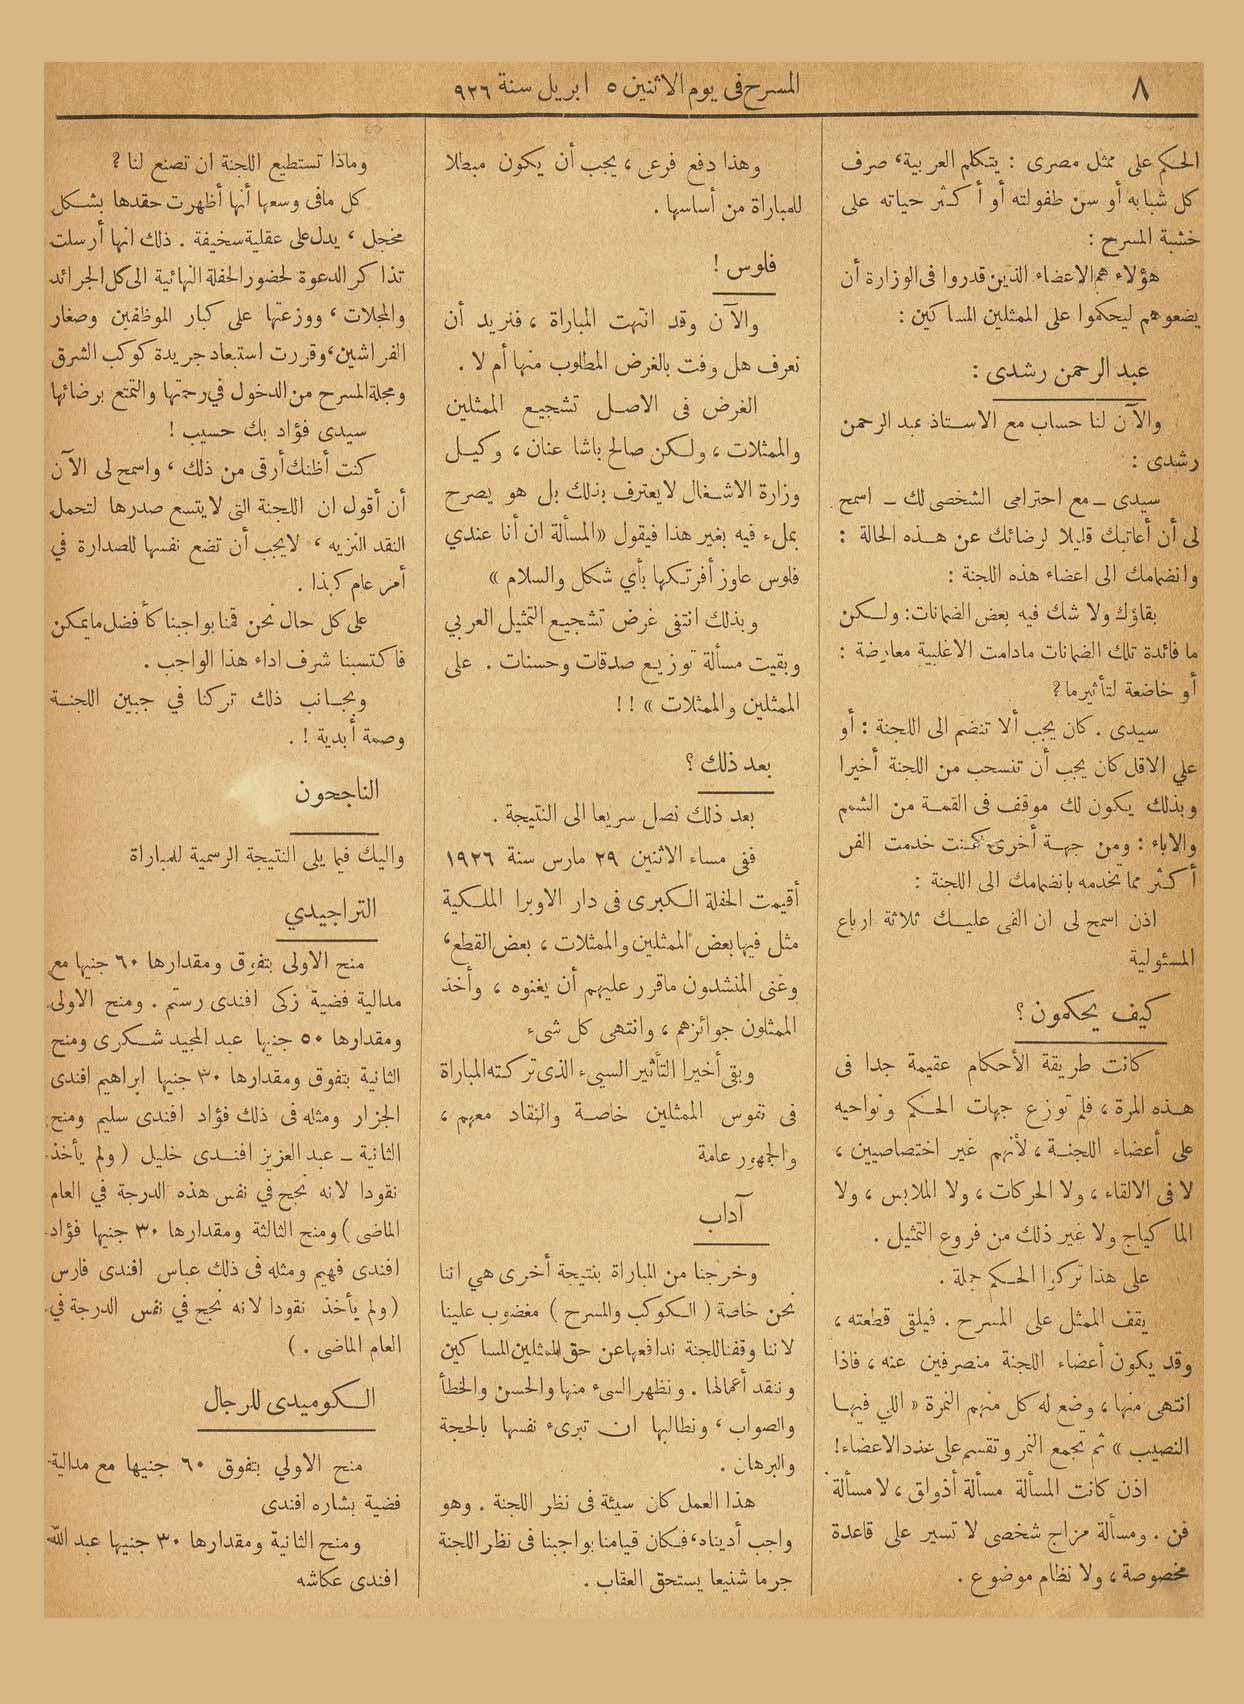 ٨
المسرح فى يوم الاثنين ٥ ابريل سنة ٩٢٦
الحكم على ممثل مصرى : يتكلم العربية، صرف
كل شبابه أو سن طفولته أو أكثر حياته على
خشبة المسرح :
هؤلاء هم الاعضاء الذين قدروا فى الوزارة أن
يضعوهم ليحكموا على الممثلين المساكين :
عبد الرحمن رشدى :
والآن لنا حساب مع الاستاذ عبد الرحمن
رشدى :
سيدى ــ مع احترامى الشخصى لك ــ اسمح
لى أن أعاتبك قليلا لرضائك عن هذه الحالة :
وانضمامك الى اعضاء هذه اللجنة :
بقاؤك ولا شك فيه بعض الضمانات : ولكن
ما فائدة تلك الضمانات مادامت الاغلبية معارضة :
أو خاضعة لتأثيرما ؟
سيدى . كان يجب ألا تنضم الى اللجنة : أو
علي الاقل كان يجب أن تنسحب من اللجنة أخيرا
وبذلك يكون لك موقف فى القمة من الشمم
والاباء : ومن جهة أخرى كنت خدمت الفن
أكثر مما تخدمه بانضمامك الى اللجنة :
اذن اسمح لى ان القى عليك ثلاثة ارباع
المسئولية
كيف يحكمون ؟
كانت طريقة الأحكام عقيمة جدا فى
هذه المرة ، فلم توزع جهات الحكم ونواحيه
على أعضاء اللجنة ، لأنهم غير اختصاصيين ،
لا فى الالقاء ، ولا الحركات ، ولا الملابس ، ولا
الماكياج ولا غير ذلك من فروع التمثيل .
على هذا تركوا الحكم جملة .
يقف الممثل على المسرح . فيلقى قطعته ،
وقد يكون أعضاء اللجنة منصرفين عنه ، فاذا
انتهى منها ، وضع له كل منهم النمرة « اللي فيها
النصيب » ثم تجمع النمر وتقسم على عدد الاعضاء !
اذن كانت المسألة مسألة أذواق ، لا مسألة
فن . ومسألة مزاج شخصى لا تسير على قاعدة
مخصوصة ، ولا نظام موضوع .
وهذا دفع فرعى ، يجب أن يكون مبطلا
للمباراة من أساسها .
فلوس !
والآن وقد انتهت المباراة ، فنريد أن
نعرف هل وفت بالغرض المطلوب منها أم لا .
الغرض فى الاصل تشجيع الممثلين
والممثلات ، ولكن صالح باشا عنان ، وكيل
وزارة الاشغال لا يعترف بذلك بل هو يصرح
بملء فيه بغير هذا فيقول « المسألة ان أنا عندي
فلوس عاوز أفرتكها بأي شكل والسلام »
وبذلك انتفى غرض تشجيع التمثيل العربي
وبقيت مسألة توزيع صدقات وحسنات . على
الممثلين والممثلات » ! !
بعد ذلك ؟
بعد ذلك نصل سريعا الى النتيجة .
ففى مساء الاثنين ٢٩ مارس سنة ١٩٢٦
أقيمت الحفلة الكبرى فى دار الاوبرا الملكية
مثل فيها بعض الممثلين والممثلات ، بعض القطع،
وغنى المنشدون ماقرر عليهم أن يغنوه ، وأخذ
الممثلون جوائزهم ، وانتهى كل شىء
وبقى أخيرا التأثير السىء الذى تركته المباراة
فى نفوس الممثلين خاصة والنقاد معهم ،
والجمهور عامة
آداب
وخرجنا من المباراة بنتيجة أخرى هي اننا
نحن خاصة ( الكوكب والمسرح ) مغضوب علينا
لاننا وقفنا للجنة ندافعها عن حق الممثلين المساكين
وننقد أعمالها . ونظهر السىء منها والحسن والخطأ
والصواب ، ونطالبها ان تبرىء نفسها بالحجة
والبرهان .
هذا العمل كان سيئة فى نظر اللجنة . وهو
واجب أديناه، فكان قيامنا بواجبنا فى نظر اللجنة
جرما شنيعا يستحق العقاب .
وماذا تستطيع اللجنة ان تصنع لنا ؟
كل مافى وسعها أنها أظهرت حقدها بشكل
مخجل ، يدل على عقلية سخيفة . ذلك انها أرسلت
تذاكر الدعوة لحضور الحفلة النهائية الى كل الجرائد
والمجلات ، ووزعتها على كبار الموظفين وصغار
الفراشين، وقررت استبعاد جريدة كوكب الشرق
ومجلة المسرح من الدخول في رحمتها والتمتع برضائها
سيدى فؤاد بك حسيب !
كنت أظنك أرقى من ذلك ، واسمح لى الآن
أن أقول ان اللجنة التى لا يتسع صدرها لتحمل
النقد النزيه ، لايجب أن تضع نفسها للصدارة في
أمر عام كهذا .
على كل حال نحن قمنا بواجبنا كأفضل ما يمكن
فاكتسبنا شرف اداء هذا الواجب .
وبجانب ذلك تركنا في جبين اللجنة
وصمة أبدية ! .
الناجحون
واليك فيما يلى النتيجة الرسمية للمباراة
التراجيدي
منح الاولى بتفوق ومقدارها ٦٠ جنيها مع
مدالية فضية زكى افندى رستم . ومنح الاولى
ومقدارها ٥٠ جنيها عبد المجيد شكرى ومنح
الثانية بتفوق ومقدارها ٣٠ جنيها ابراهيم افندى
الجزار ومثله فى ذلك فؤاد افندى سليم ومنح
الثانية ــ عبد العزيز افندى خليل ( ولم يأخذ
نقودا لانه نجح في نفس هذه الدرجة في العام
الماضى ) ومنح الثالثة ومقدارها ٣٠ جنيها فؤاد
افندى فهيم ومثله فى ذلك عباس افندى فارس
( ولم يأخذ نقودا لانه نجح في نفس الدرجة في
العام الماضى . )
الكوميدى للرجال
منح الاولي بتفوق ٦٠ جنيها مع مدالية
فضية بشاره افندى
ومنح الثانية ومقدارها ٣٠ جنيها عبد الله
افندى عكاشه